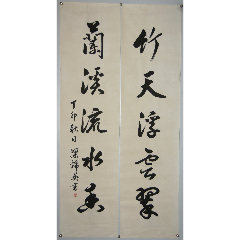 竹天浮雲翠
蘭溪流水香
丁卯秋月
梁錦英書